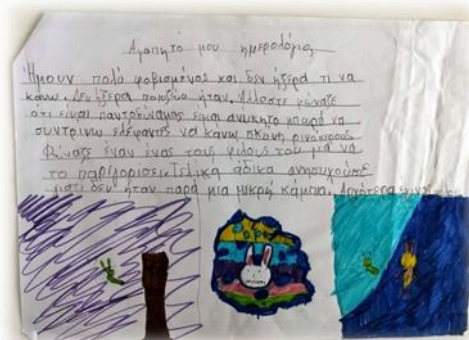 Αγαπητό μου ημερολόγιο
Ήμουν πολύ φοβισμένος και δεν ήξερα τι να
κάνω. Δεν ήξερα ποιος ήταν. Άλλοστε φώναζε
ότι είμαι παντοδύναμος είμαι ανίκητο μπορώ να
συντρίψω ελέφαντες να κάνω σκόνη ρινόκερους.
Φώναξε έναν ένας τους φίλους του για να
το Τελικά άδικα ανησυχούσε
γιατί δεν ήταν παρά μια μικρή κάμπια. Αργότερα